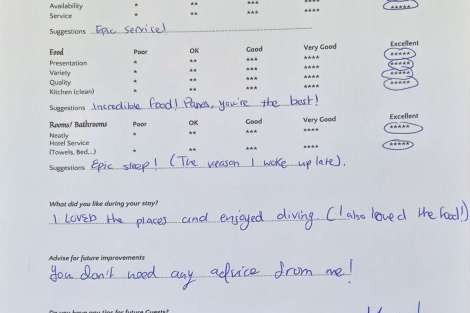 Availability * ** *** **** *****
Service * ** *** ****
Suggestions Epic Service!
Food Poor OK Good Very Good Excellent
Presentation * ** *** **** *****
Variety * ** *** **** *****
Quality * ** *** **** *****
Kitchen (clean) * ** *** **** *****
Suggestions Incredible food! , you're the best!
Rooms/ Bathrooms Poor OK Good Very Good Excellent
Neatly * ** *** **** *****
Hotel Service
(Towels, Bed,..) * ** *** **** *****
Suggestions Epic sleep! (The reason I woke up late).
What did you like during your stay?
I LOVED the places and enjoyed diving (I also loved the food!)
Advise for future improvements
You don't need any advice from me!
Do you have any tips for future Guests?